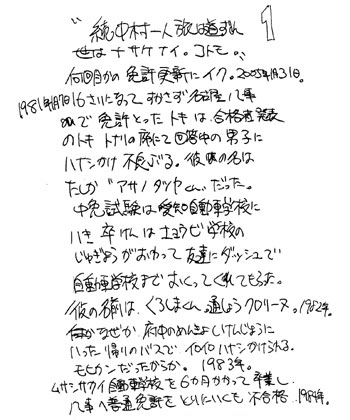 "続中村一人旅は道ずれ 1
世はナサケナイ。コトモ。"
何回目かの免許更新にイク。2005年1月31日。
1981年1月7日16さいになってすかさず名古屋
で免許とったトキは、合格者発表
のトキトナリの席にて回答中の男子に
ハナシかけ不良ぶる。彼の名は
たしか"アサノタツヤくん"だった。
中免試験は愛知自動車学校に
いき 卒けんは土ようび学校の
じゅぎょうがおわって友達にダッシュで
自動車学校までおくってくれてもらった。
彼の名前は、くろしまくん。通しょうクロリーヌ。1982年。
何かなぜか 府中のめんきょしけんじょうに
いった帰りのバスで イロイロハナシかけられる。
モヒカンだったからか。1983年。
ムサシサカイ自動車学校を6カ月かかって卒業し、
へ普通免許をとりにいくも不合格。1984年。